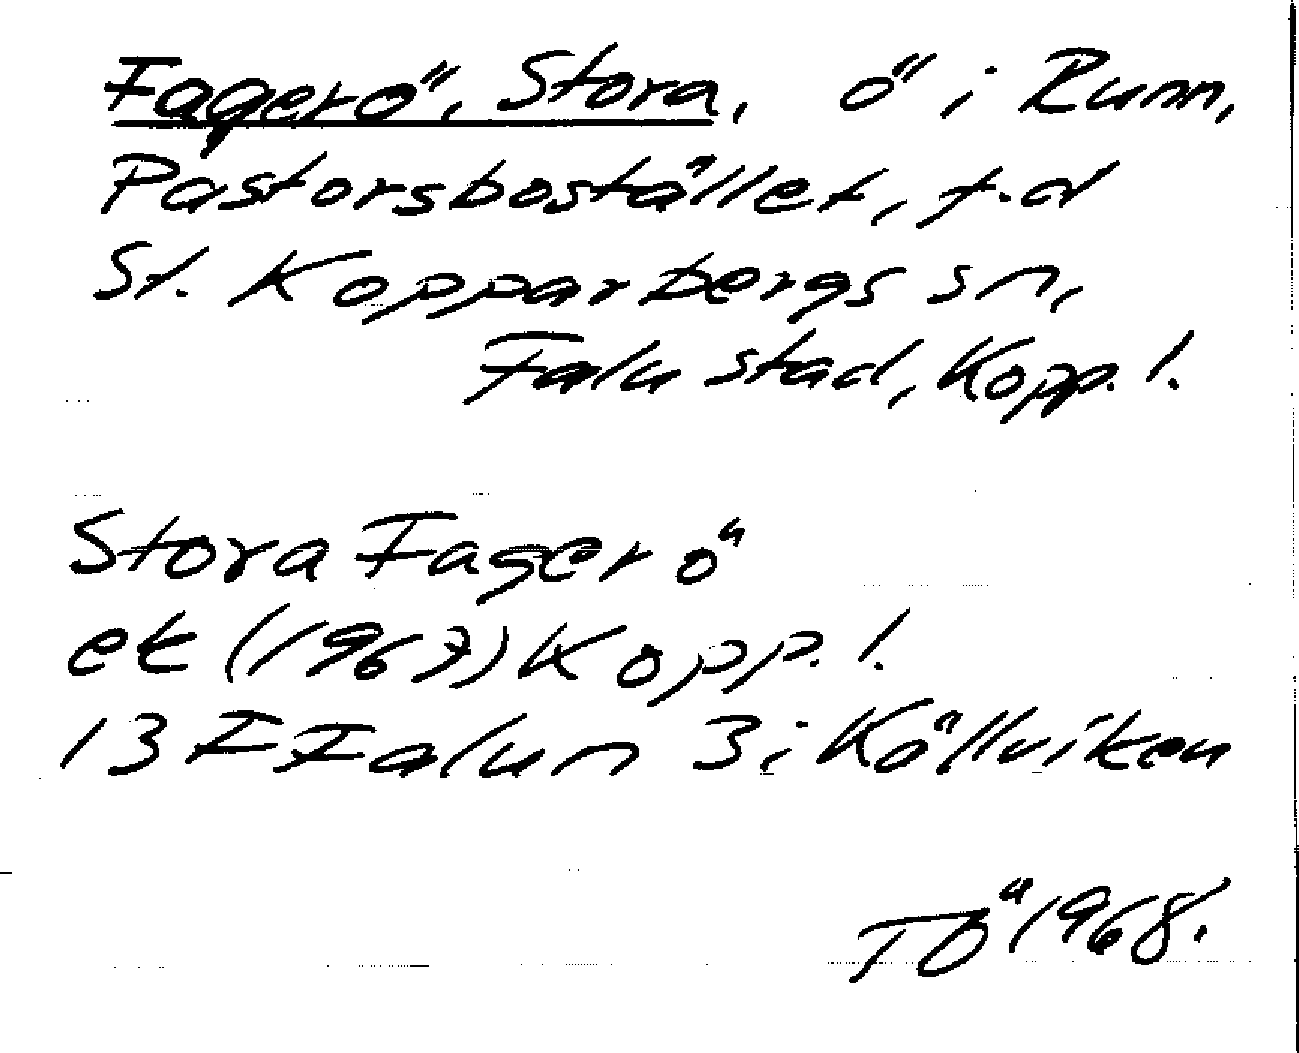 Fagerö, Stora, ö i Runn,
Pastorsbostället, f.d
St. Kopparbergs sn,
Falu stad, Kopp. l.
Stora Fagerö
ek (1967) Kopp. l.
13 F Falun 3 i Källviken
TÖ 1968.